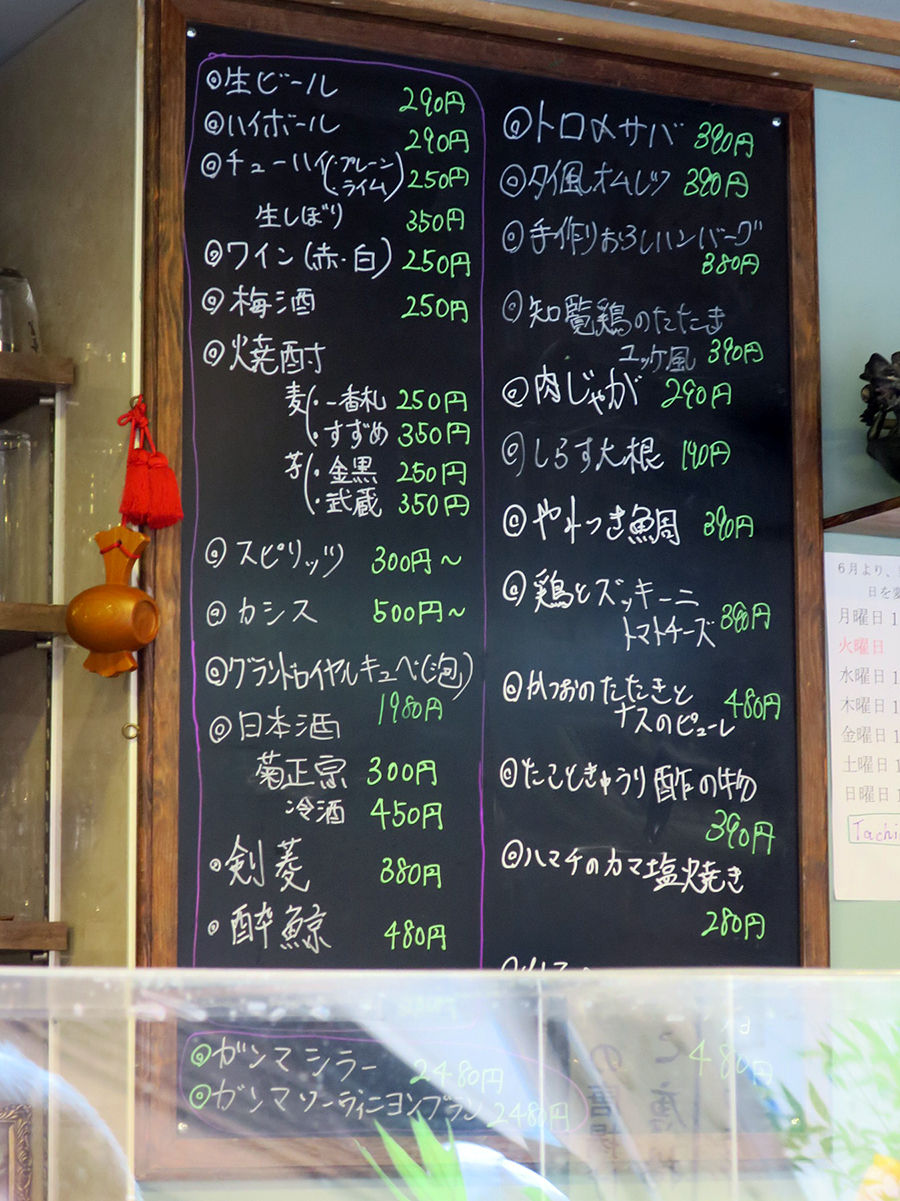 ◎生ビール 290円
◎ハイボール 290円
◎チューハイ(・プレーン
・ライム) 250円
生しぼり 350円
◎ワイン(赤・白) 250円
◎梅酒 250円
◎焼酎
麦(・一番札 250円
・すずめ 350円
芋(・金黒 250円
・武蔵 350円
◎スピリッツ 300円~
◎カシス 500円~
◎グランドロイヤルキュベ(泡)
1980円
◎日本酒
菊正宗 300円
冷酒 450円
・剣菱 380円
・酔鯨 480円
◎ガンマ シラー 2480円
◎ガンマ ソーヴィニヨンブラン 2480円
◎トロ〆サバ 390円
◎タイ風オムレツ 390円
◎手作りおろしハンバーグ
380円
◎知覧鶏のたたき
ユッケ風 390円
◎肉じゃが 290円
◎しらす大根 190円
◎やわつき鯛 390円
◎鶏とズッキーニ
トマトチーズ 390円
◎かつおのたたきと
ナスのピューレ 480円
◎たこときゅうり酢の物
390円
◎ハマチのカマ塩焼き
280円
480円
6月より、
日を変
月曜日 1
火曜日
水曜日 1
木曜日 1
金曜日 1
土曜日 1
日曜日 1
Tachi